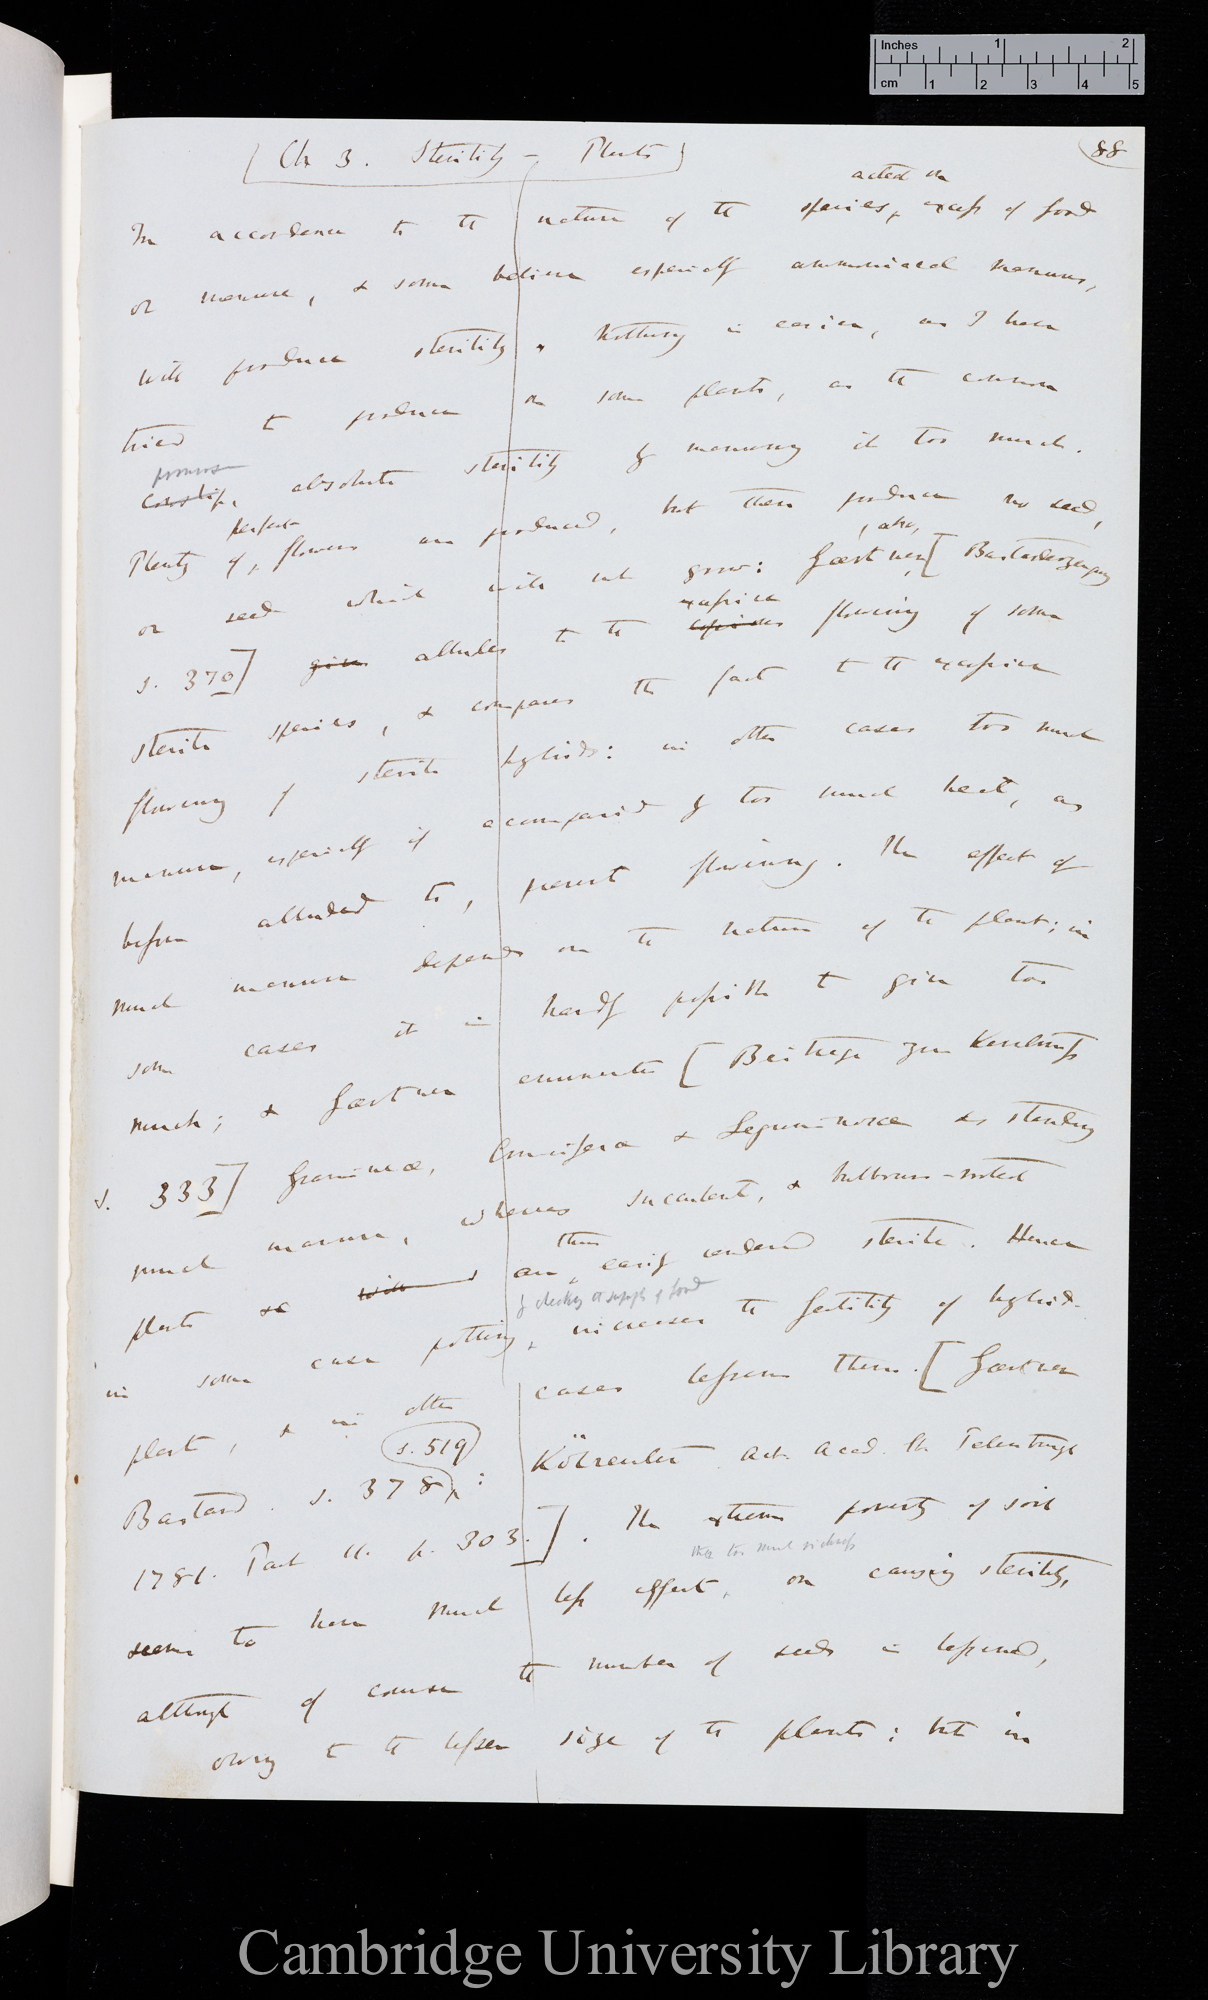 Inches 1 2
cm 1 2 3 4 5
88
[Ch 3. Sterility — Plants]
acted on
In accordance to the nature of the species, excess of food
or manure, & some believe especially ammoniacal manures,
will produce sterility. Nothing is easier, as I have
tried to produce on some plants, as the common
primrose
cowslip, absolute sterility by manuring it too much.
perfect
Plenty of, flowers are produced, but these produce no seed,
, also,
or seed which will not grow: Gærtner [Bastarderzeugung
excessive
s. 370] gives alludes to the copious flowering of some
sterile species, & compares the fact to the excessive
flowering of sterile hybrids: in other cases too much
manure, especially if accompanied by too much heat, as
before alluded to, prevent flowering. The effect of
much manure depends on the nature of the plant; in
some cases it is hardly possible to give too
much; & Gærtner enumerates [Beitrage zur Kenntniss
s. 333] Gramineæ, Cruciferæ & Leguminosæ as standing
much manure, whereas succulent, & bulbous-rooted
thus
plants are will are, easily rendered sterile. Hence
by checking the supply of food
in some cases potting, increases the fertility of hybrid-
plants, & in other cases lessens them. [Gærtner
s. 519
Bastard. s. 378: Kölreuter Act. Acad. St Petersburg
1781. Part II. p. 303.]. The extreme poverty of soil
than too much richness
seems to have much less effect, on causing sterility,
although of course the number of seeds is lessened,
owing to the lesser size of the plants; but in
Cambridge University Library